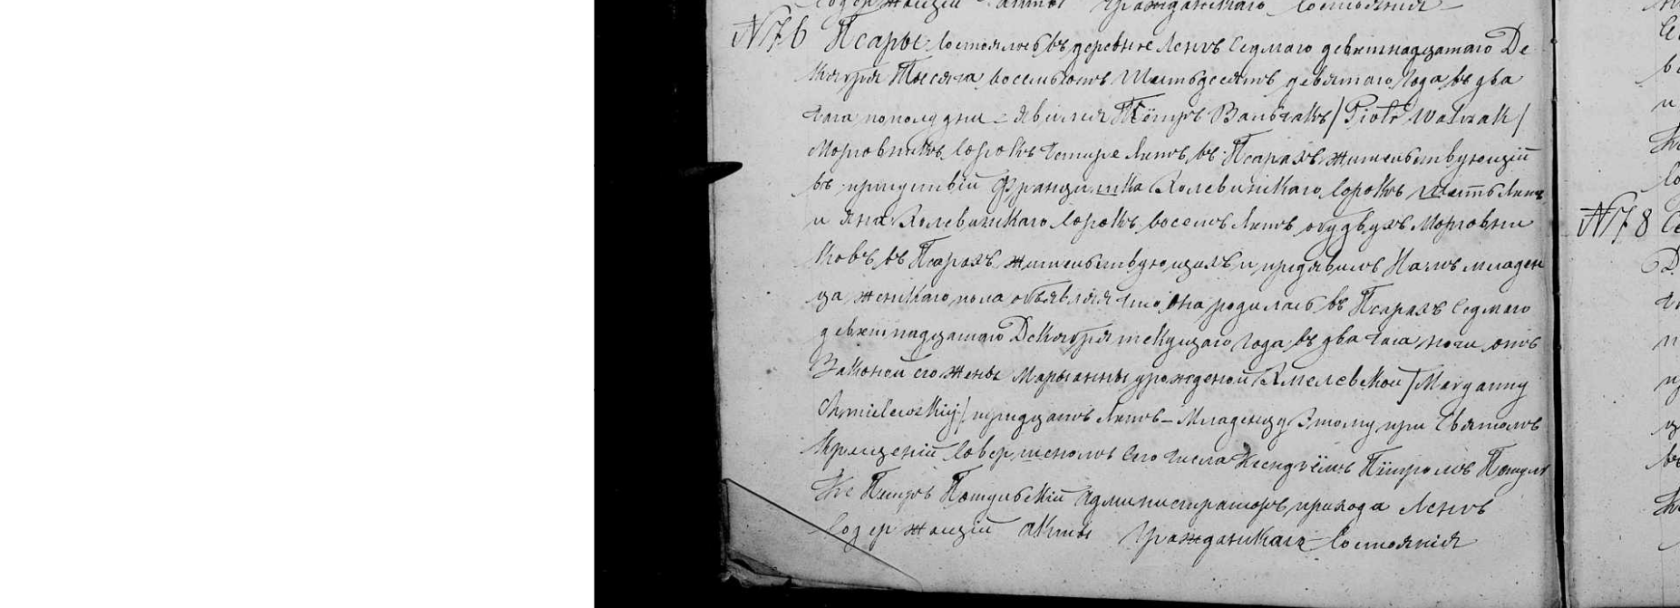 содержащій акты гражданскаго состоянія
№76 Псары состоялось въ деревне Ленкъ Седмаго девятнадцатаго Де
кабря Тысяча восемьсотъ шестьдесятъ девятаго года въ два
часа пополудни – Явился Пётръ Вальчакъ /Piotr Walczak/
Морговникъ сорокъ четыре летъ въ Псарахъ жительствующій
въ присутствіи Францишка сорокъ шесть летъ
и Яна сорокъ восемъ летъ обудвухъ Морговни
ковъ въ Псарахъ жительствующихъ и предявилъ Намъ младен
ца женскаго пола объявляя что она родилась въ Псарахъ Седмаго
девятнадцатаго Декабря текущаго года въ два часа ночи отъ
Законой его жены Марыанны урожденой Хмелевской /Maryanny
Chmielewskiej/ тридцать летъ – Младенцу Этому при Святомъ
Крещеніи совершеномъ сего числа Ксендзёмъ Пётромъ
Кс Петръ Администраторъ прихода Ленкъ
Содержащій акты гражданскаго состоянія
№78